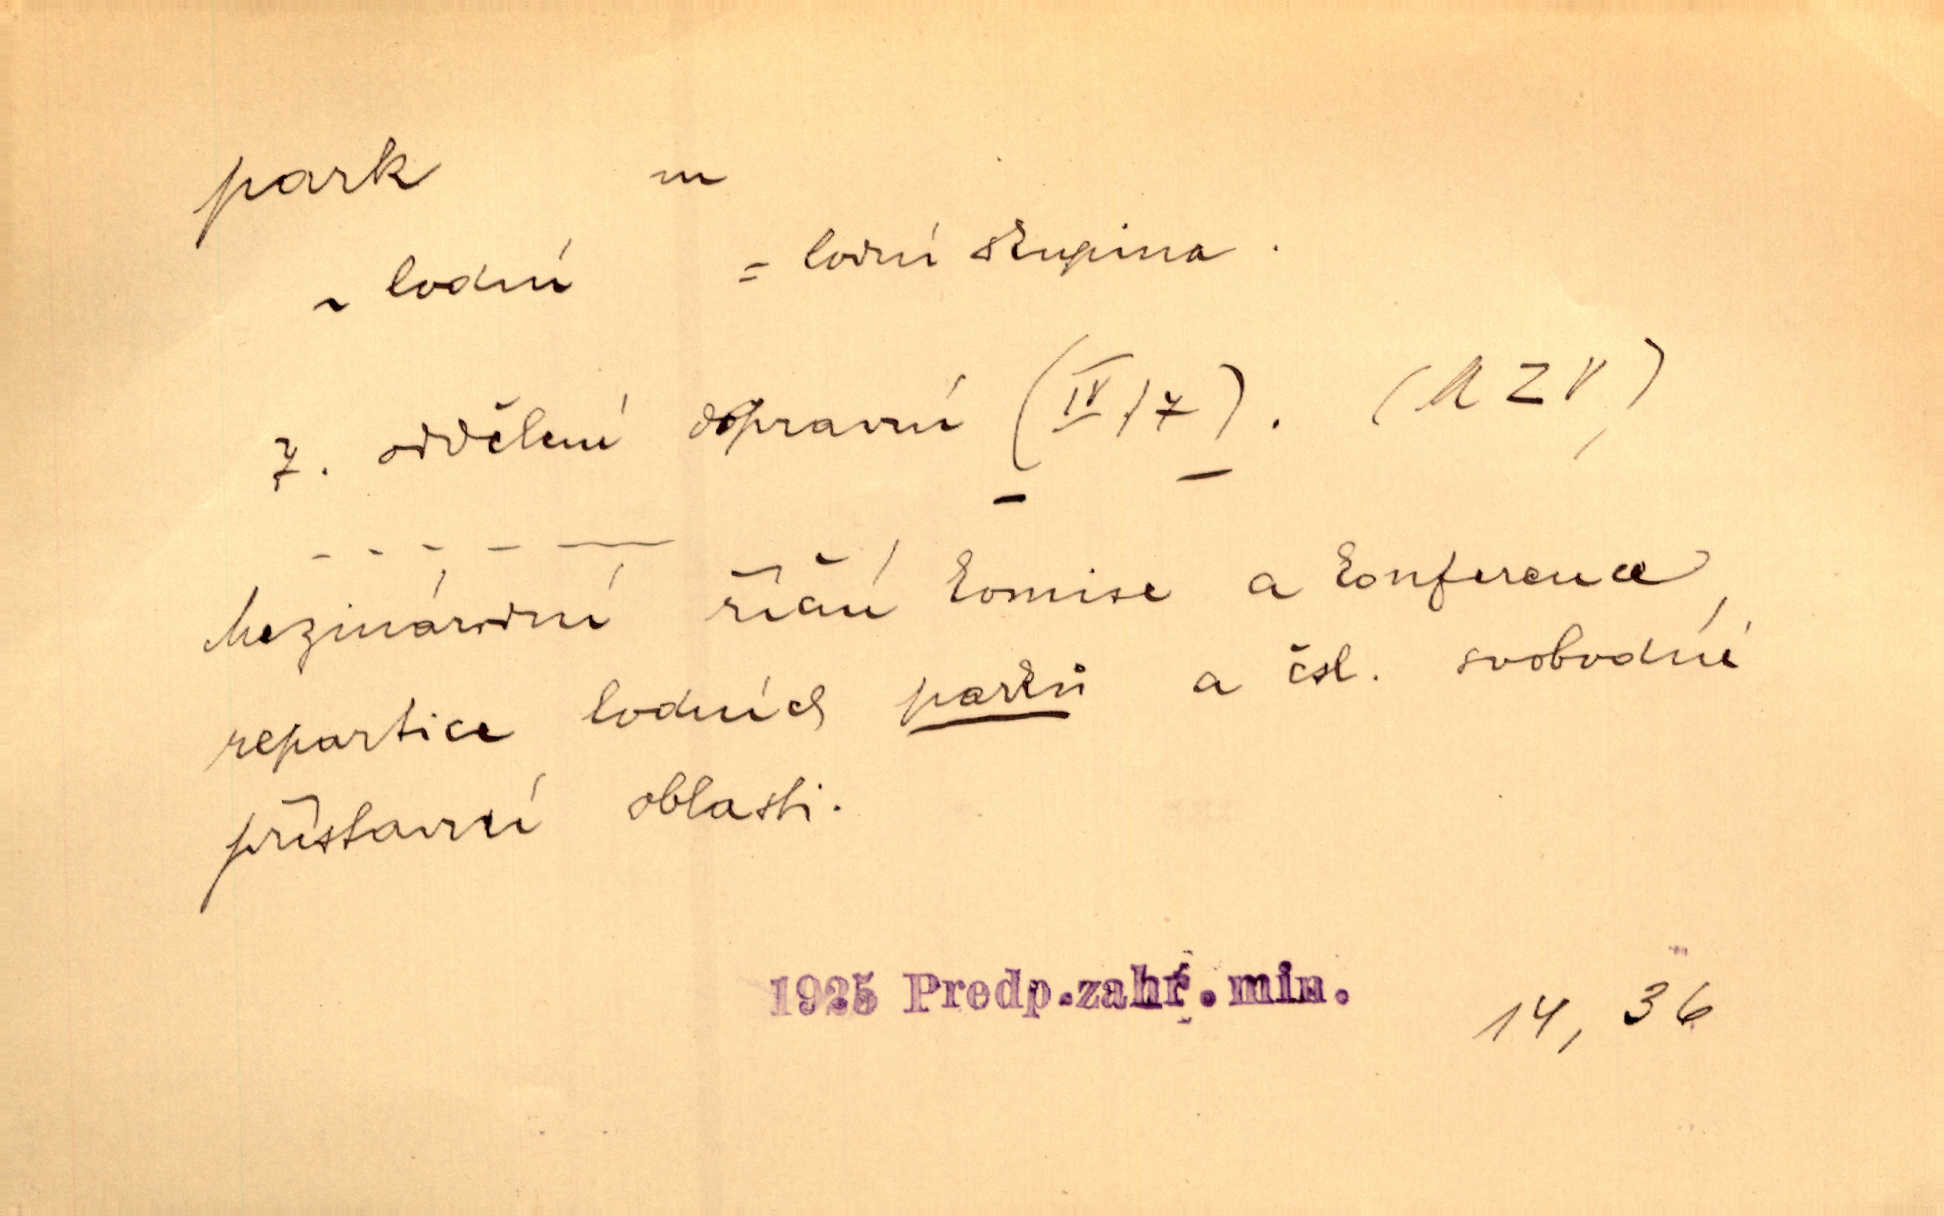 park m
~ lodní = lodní skupina.
7. oddělení dopravní (IV/7). (MZV)
- - - - —
Mezinárodní říční komise a konference,
repartice lodních parků a čsl. svobodné
přístavní oblasti.
1925 Predp.zahr.min. 14, 36